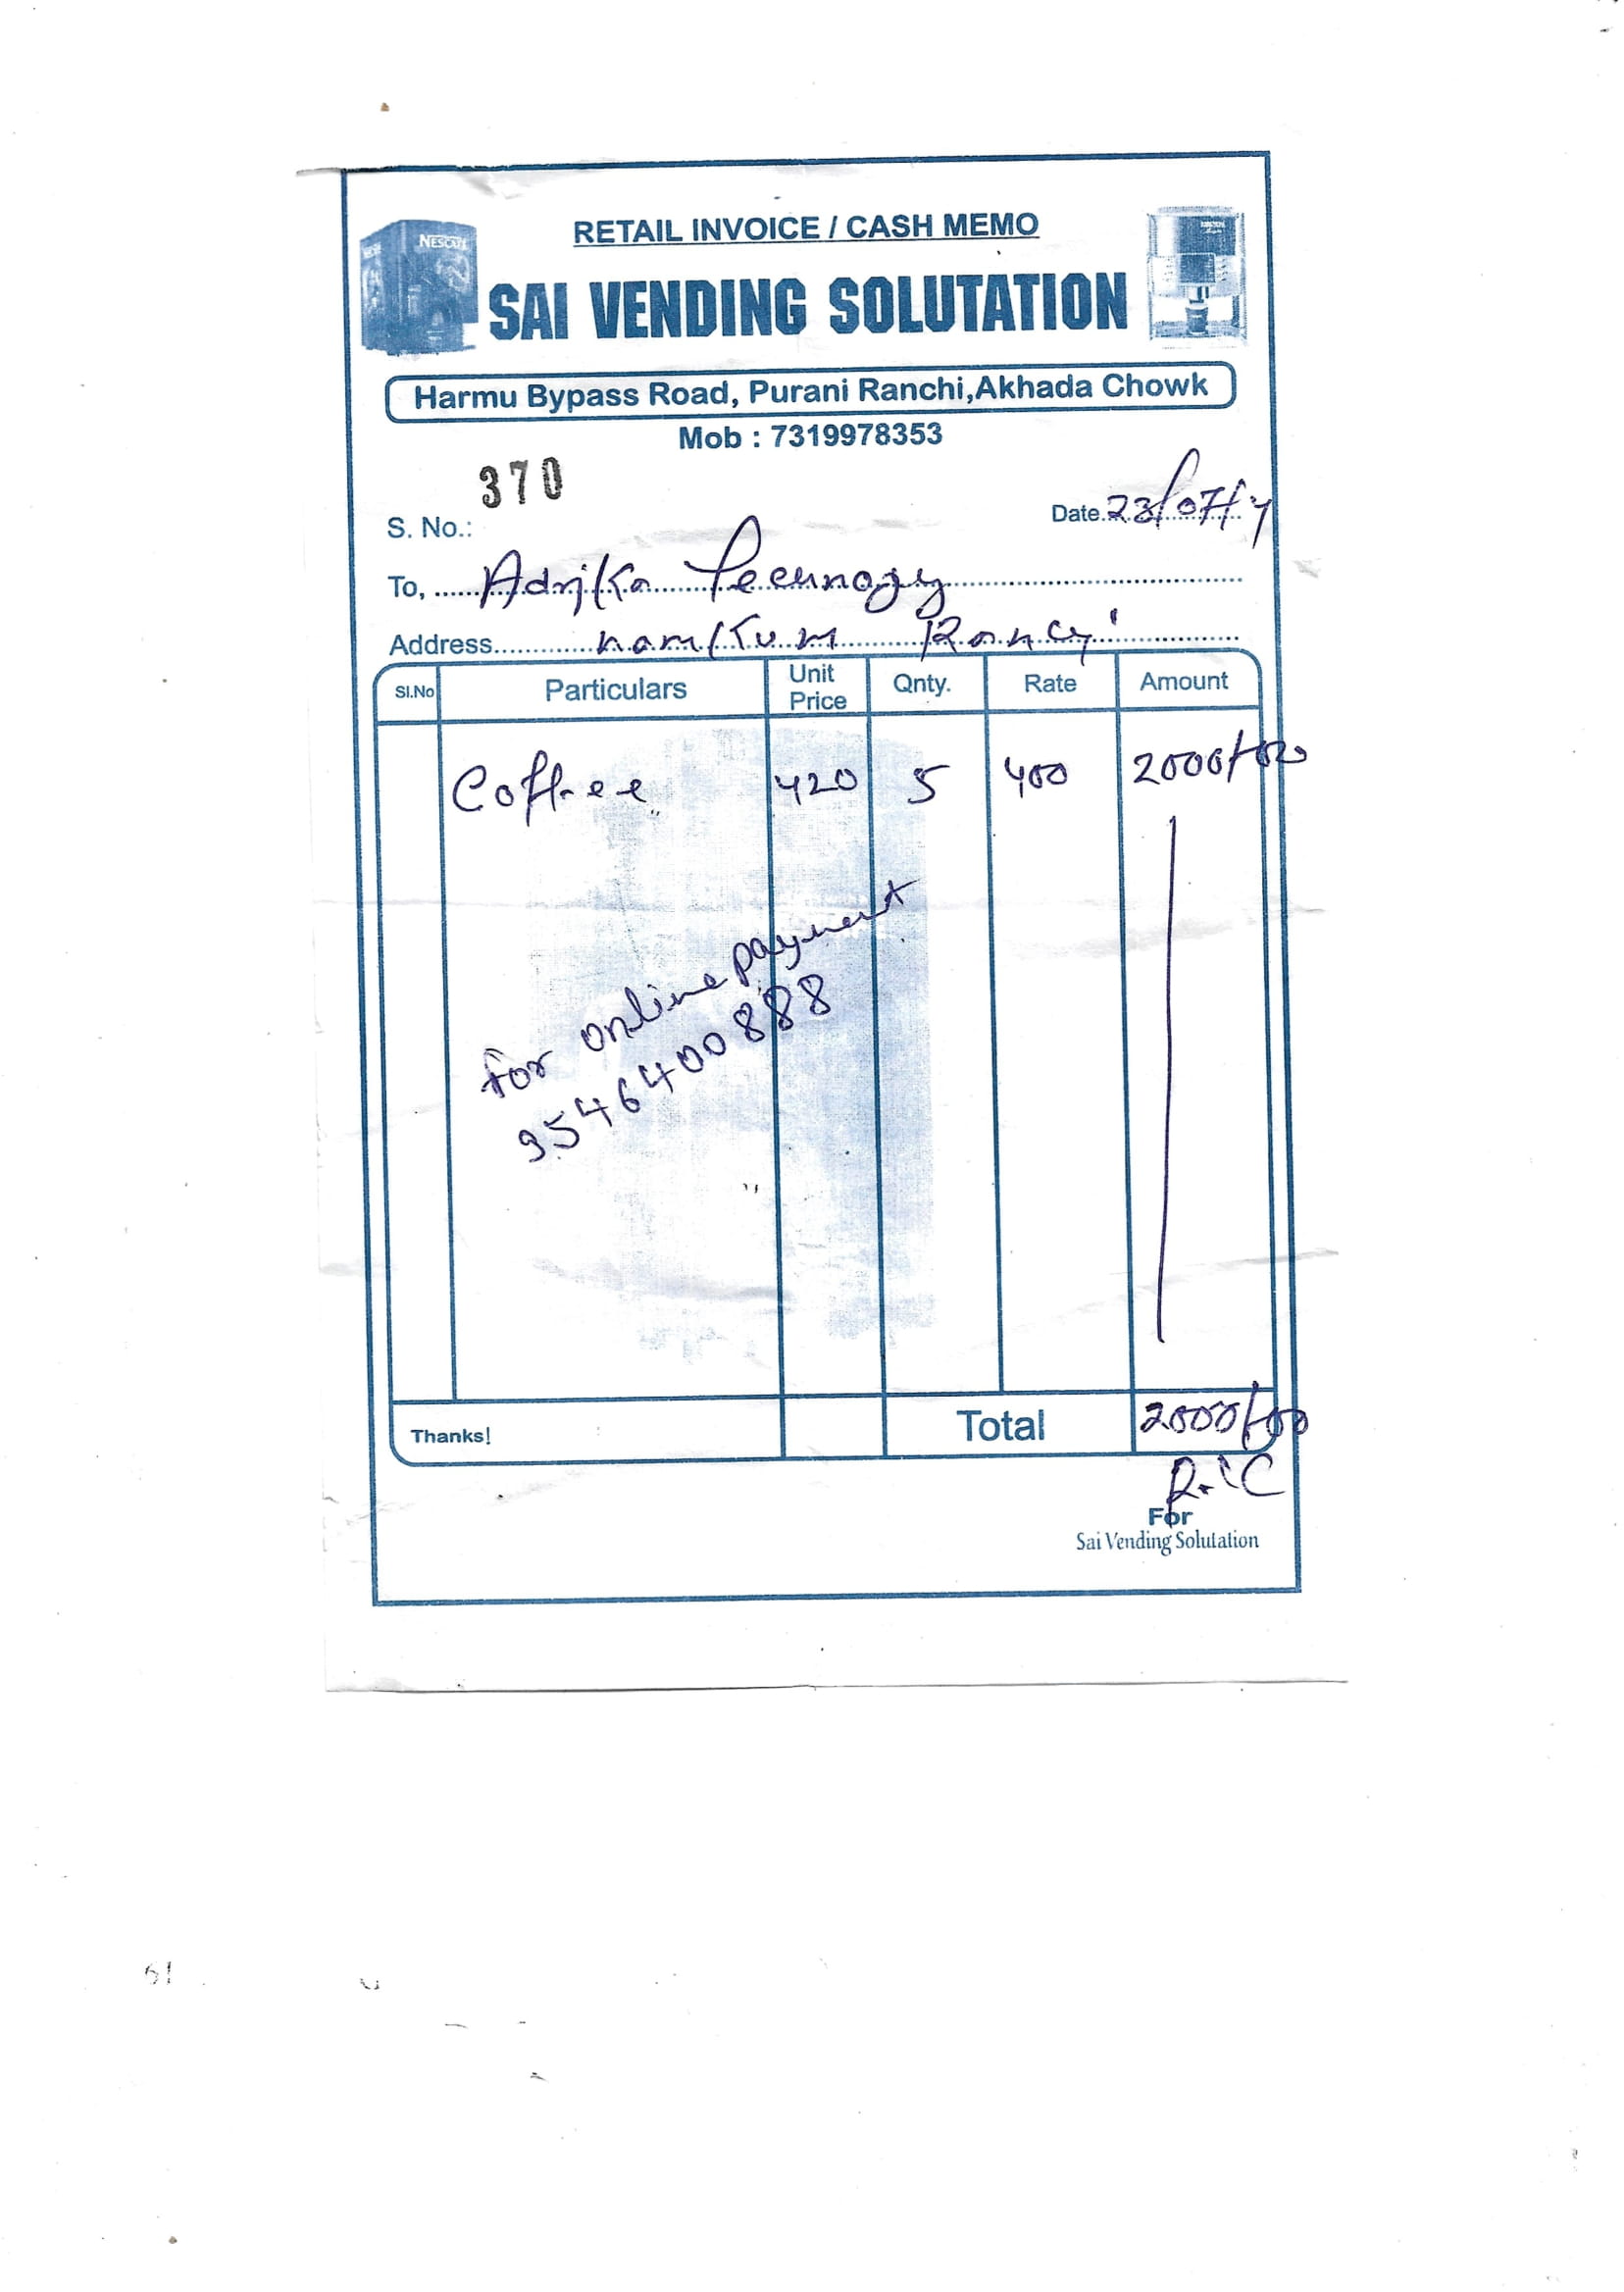 NESCAFE
RETAIL INVOICE / CASH MEMO
SAI VENDING SOLUTATION
Harmu Bypass Road, Purani Ranchi,Akhada Chowk
Mob : 7319978353
370
S. No.:
Date. 23/07/
To, Adrjka Tecnnogy
Address. namkum Ranci
Sl.No Particulars Unit Price Qnty. Rate Amount
Coffee 420 5 400 2000/00
for online payment
9546400888
Thanks! Total 2000/00
For
Sai Vending Solutation